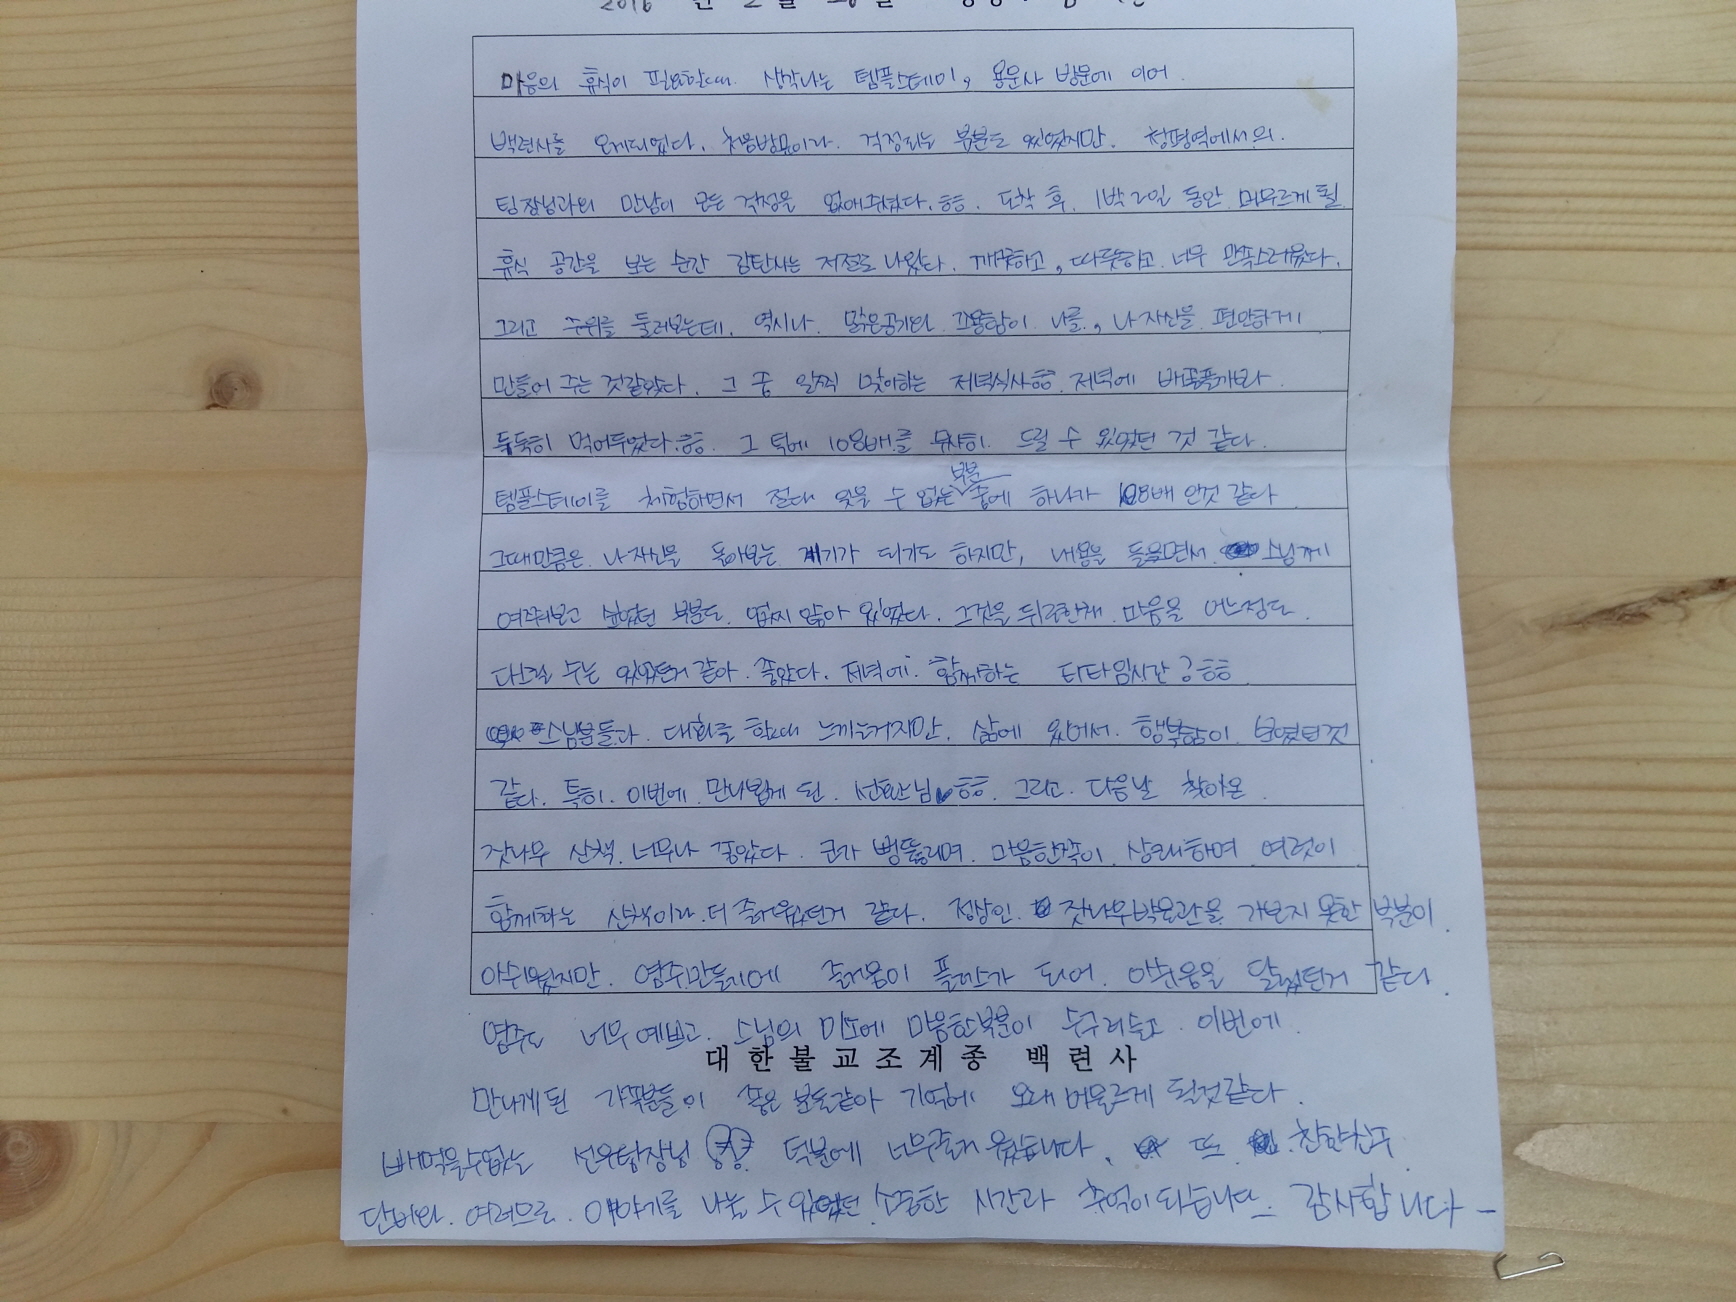 2016 년 2월
마음의 휴식이 필요할때 생각나는 템플스테이, 용문사 방문에 이어.
백련사를 오게되었다. 처음방문이라. 걱정되는 부분도 있었지만. 청평역에서의.
팀장님과의 만남이 모든 걱정을 없애주셨다.ㅎㅎ. 도착 후. 1박 2일 동안 머무르게 될
휴식 공간을 보는 순간 감탄사는 저절로 나왔다. 깨끗하고, 따뜻하고 너무 만족스러웠다.
그리고 주위를 둘러보는데. 역시나. 맑은공기와 고용함이 나를, 나 자신을 편안하게
만들어 주는 것같았다. 그 중 일찍 맞이하는 저녁식사ㅎㅎ. 저녁에 배고플까봐
두둑히 먹어두었다.ㅎㅎ. 그 덕에 108배를 무사히. 드릴 수 있었던 것 같다.
템플스테이를 체험하면서 절대 잊을 수 없는 부분 중에 하나가 108배 인것 같다
그때만큼은 나 자신을 돌아보는 계기가 되기도 하지만, 내용을 들으면서 스님께
여쭤보고 싶었던 부분도 없지 않아 있었다. 그것을 뒤로한채 마음을 어느정도
다스릴 수는 있었던거 같아 좋았다. 저녁에 함께하는 티타임시간 ㅎㅎ
스님분들과 대화를 할때 느끼는거지만. 삶에 있어서 행복함이 보였던것
같다. 특히. 이번에 만나뵙게 된 ㅎㅎ. 그리고. 다음날 찾아온
잣나무 산책 너무나 좋았다. 코가 뻥뚫리며. 마음한쪽이 상쾌하며 여럿이
함께하는 산책이라 더 즐거웠던거 같다. 정상인 잣나무박물관을 가보지 못한 부분이
아쉬웠지만. 염주만들기에 즐거움이 플러스가 되어. 아쉬움을 달랬던거 같다.
염주도 너무 예쁘고. 스님의 미소에 마음한부분이 수구러들고. 이번에.
대한불교조계종 백련사
만나게된 가족분들이 좋은 분들같아 기억에 오래 머무르게 될것같다.
빼먹을수없는 선우팀장님 덕분에 너무즐거웠습니다. 또 친한친구
단비와. 여러모로. 이야기를 나눌 수 있었던 소중한 시간과 추억이 되습니다. 감사합니다-